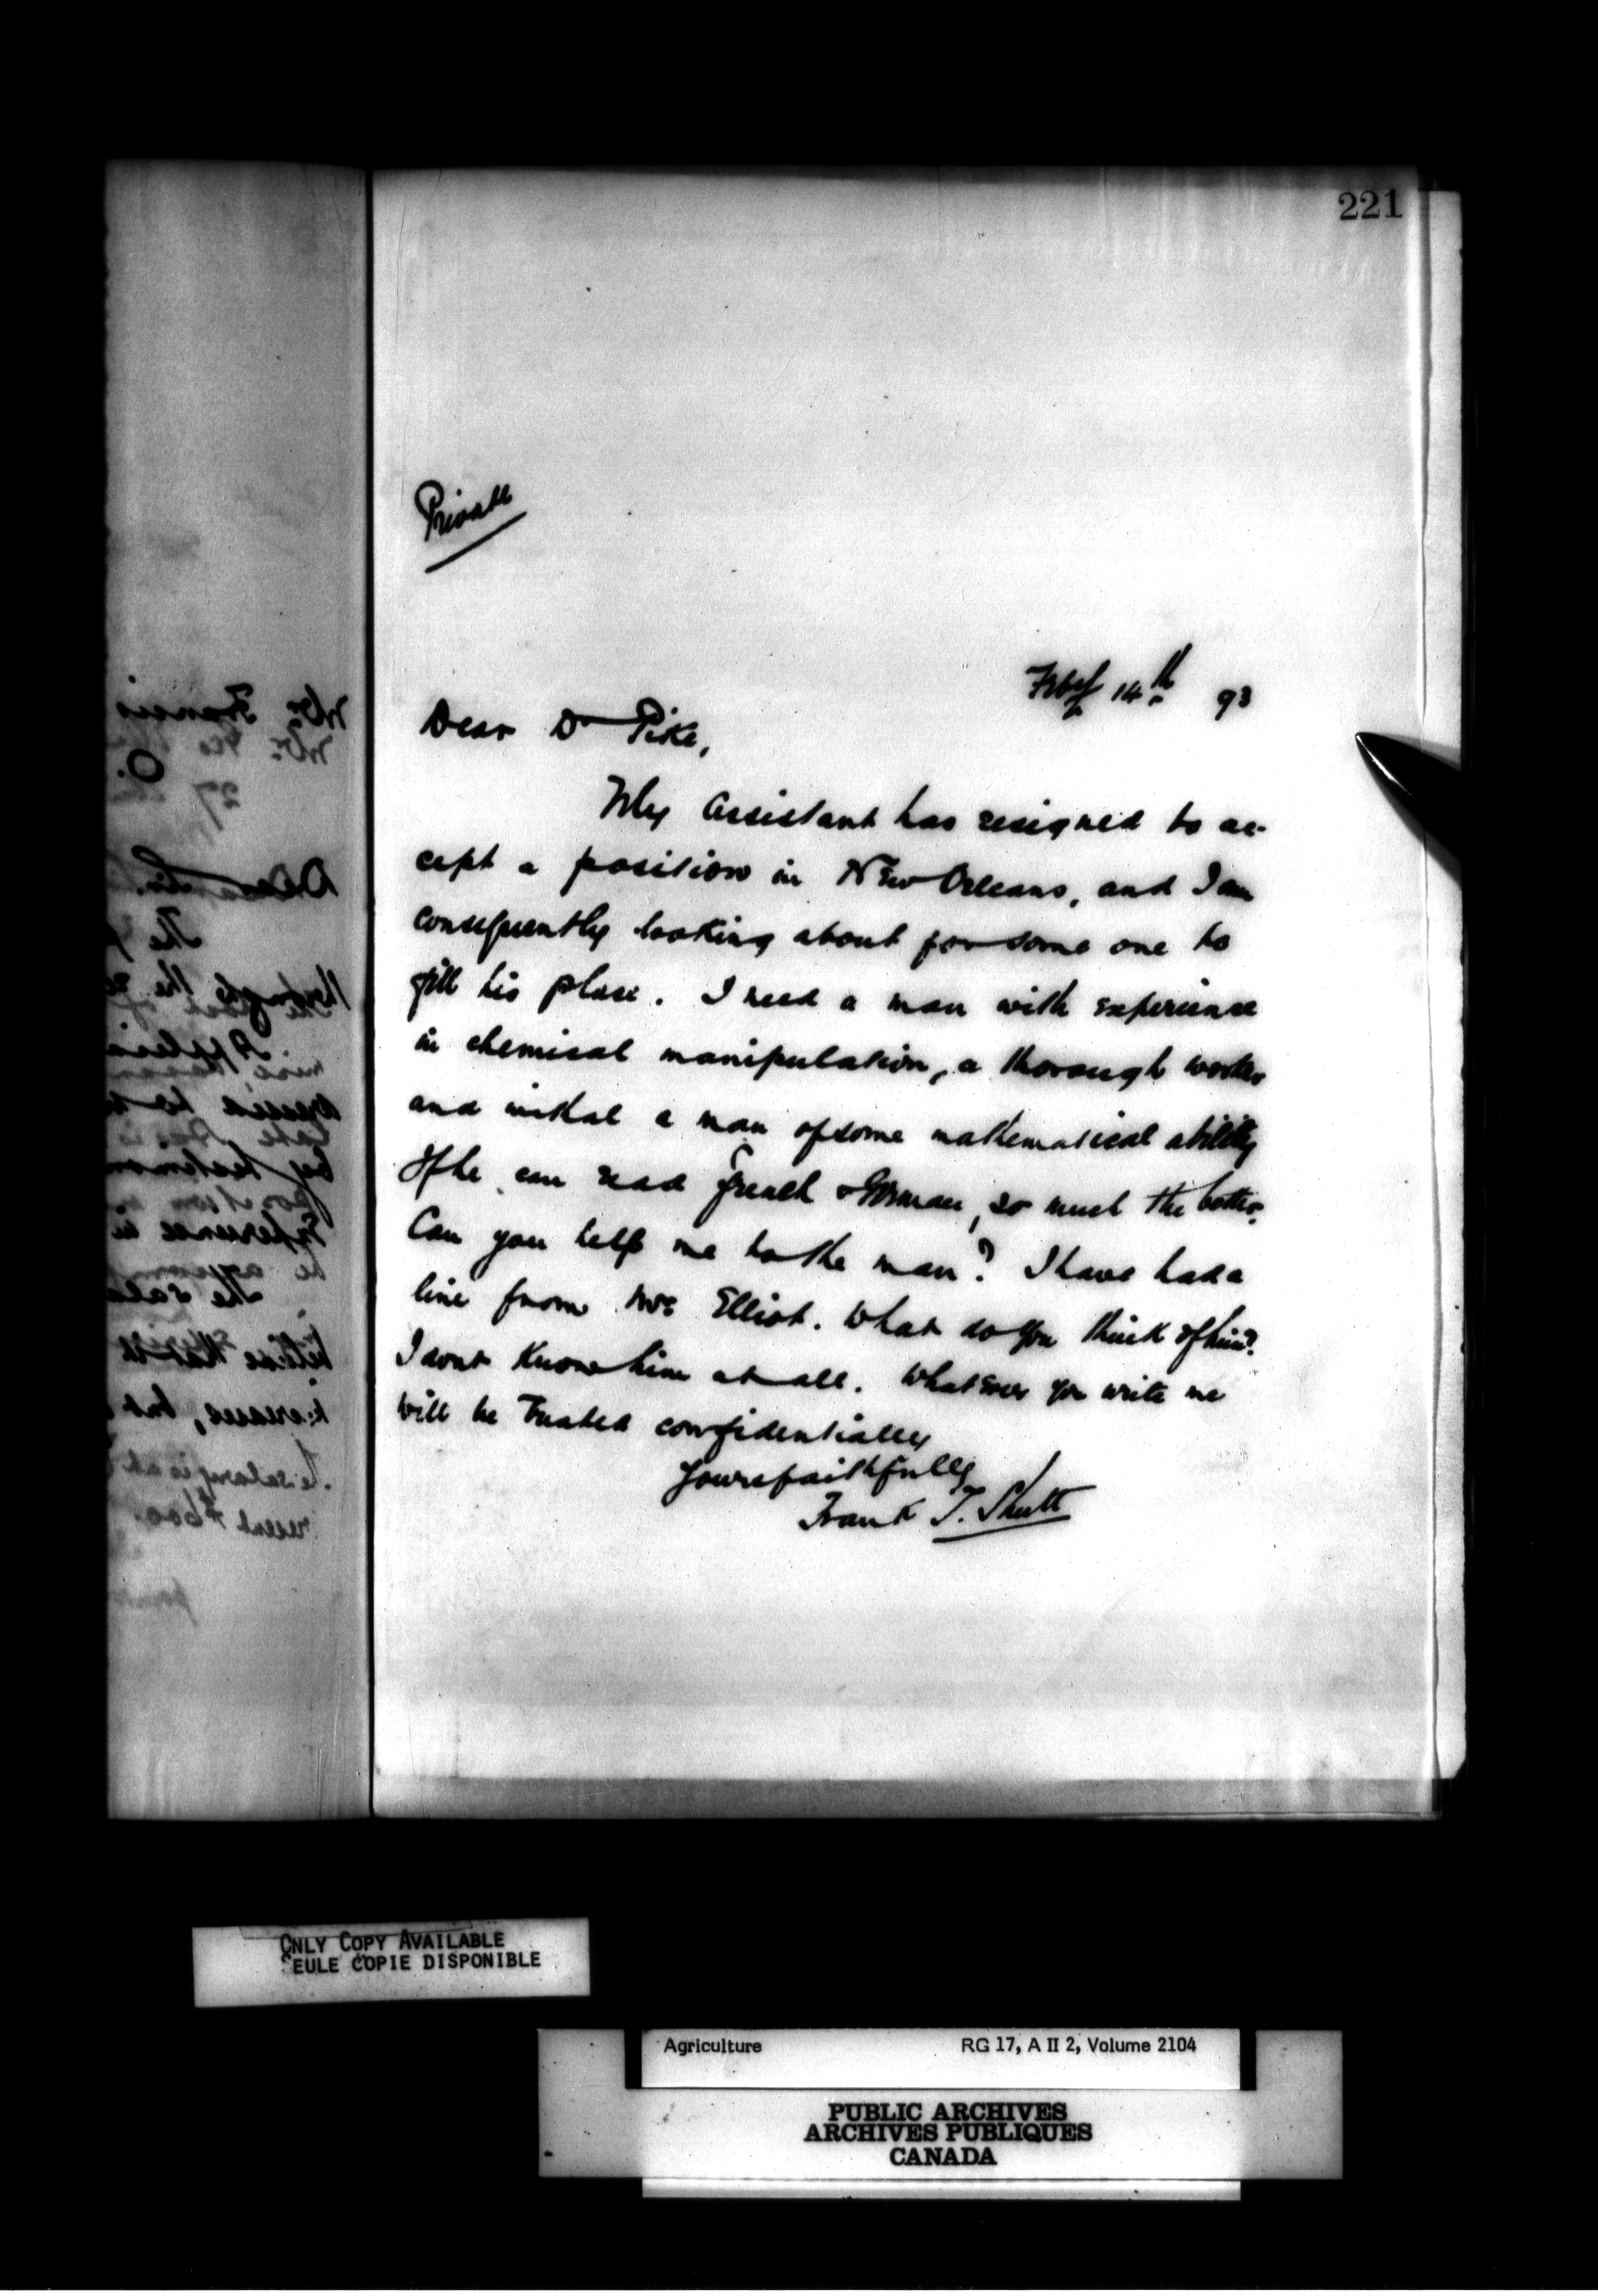 221
Private
Feby 14th 93
Dear Dr Pike,
My Assistant has resigned to ac-
cept a position in New Orleans, and I am
consequently looking about for some one to
fill his place. I need a man with experience
in chemical manipulation, a thorough worker
and withal a man of some mathematical ability
If he can read French & German, so much the better.
Can you help me to the man? I have had a
line from Mr Elliot. What do you think of him?
I dont Know him at all. Whatever you write me
will be treated confidentially
Yours faithfully
Frank T. Shutt
ONLY COPY AVAILABLE
SEULE COPIE DISPONIBLE
Agriculture RG 17, A II 2, Volume 2104
PUBLIC ARCHIVES
ARCHIVES PUBLIQUES
CANADA